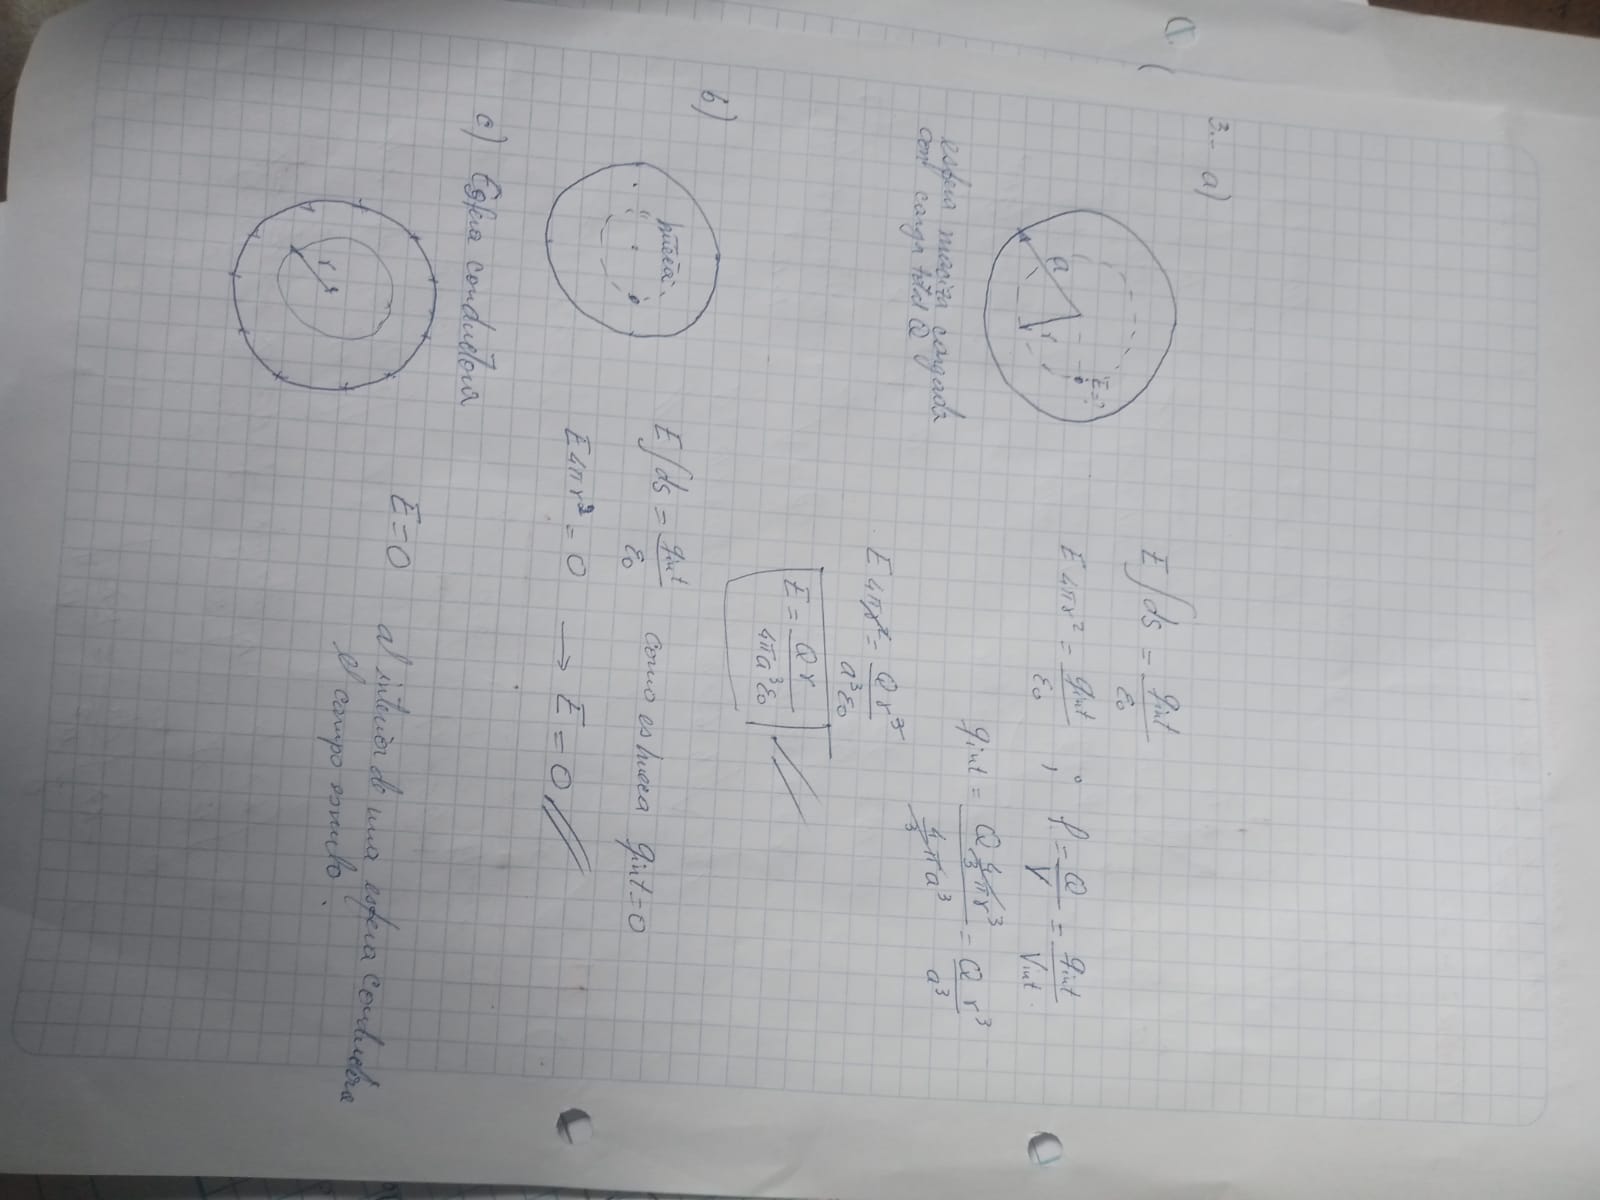 3.- a)
a
r
E=?
esfera maciza cargada
con carga total Q
E∫ds = qint/ε0
E4πr² = qint/ε0 ; ρ = Q/V = qint/Vint.
qint = Q 4/3 πr³ / 4/3 πa³ = Q r³/a³
E4πr² = Q r³/a³ε0
E = Q r/4πa³ε0
b)
hueca
E∫ds = qint/ε0 como es hueca qint=0
E4πr² = 0 → E = 0
c) Esfera conductora
r
E=0 al interior de una esfera conductora
el campo es nulo.